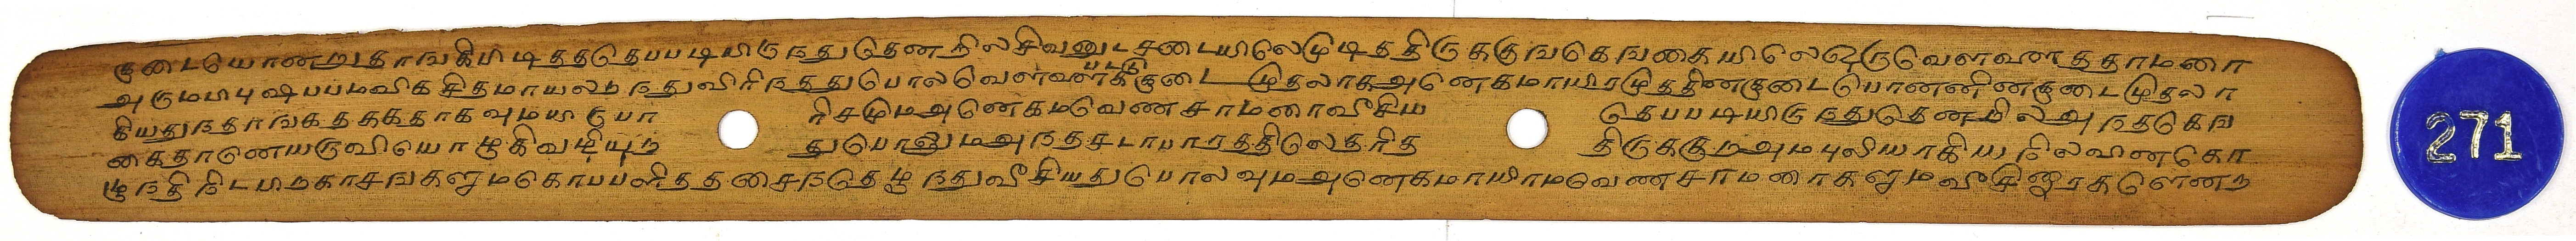 குடைபோனறுதாஙகிபிடிததகெபபடியிருநதுதெனறில சிவனுடசடையிலெமுடிததிருககுஙகெஙகையிலெஒருவெளவணததாமணா
அருமபிபுஷபபமவிகசிதமாயலநநதுவிரிநததுபொலவெளவணபபடடுககுடைமுதலாகஅனெகமாயிரமுததினகுடைபொனனினகுடைமுதலா
கியதுநதாஙகததககதாகவுமயிருபா ரிசமுமஅனெகமவெணசாமணாவீசிய தெபபடியிருநதுதெனறில அநதகெங
கைதானெயருவியொழுகிவடியுந துபொலுமஅநதசடாபாரததிலெதரித திருககுமஅமபுலியாகிய நிலவினகொ
ழுநதிநிடபிறகாசஙகளுமகொபபளிதததிசைநடுதெழுநதுவீசியதுபொலவுமஅனெகமாயிரமவெணசாமணாகளுமவீசினாரகளெனற
271